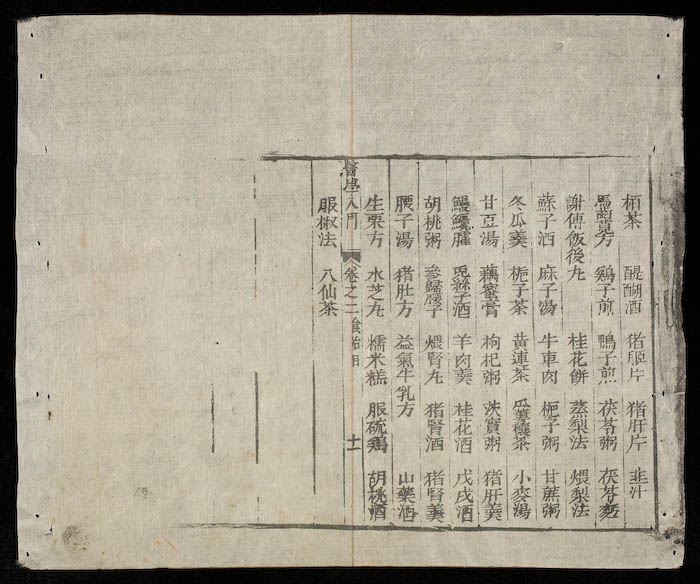 栢茶 醍醐酒 猪脤片 猪肝片 韭汁
馬齒莧方 鷄子煎 鴨子煎 茯苓粥 茯苓麪
謝傅飯後丸 桂花餅 蒸梨法 煨梨法
蘇子酒 麻子湯 牛車肉 梔子粥 甘蔗粥
冬瓜羹 梔子茶 黃連茶 瓜蔞穰茶 小麥湯
甘豆湯 藕蜜膏 枸杞粥 茨實粥 猪肝羹
鰻鱺臛 兎絲子酒 羊肉羹 桂花酒 戊戌酒
胡桃粥 參歸腰子 煨腎丸 猪腎酒 猪腎羹
腰子湯 猪肚方 益氣牛乳方 山藥酒
生栗方 水芝丸 糯米糕 服硫鷄 胡桃酒
醫學入門 卷之二 食治目 十一
服椒法 八仙茶